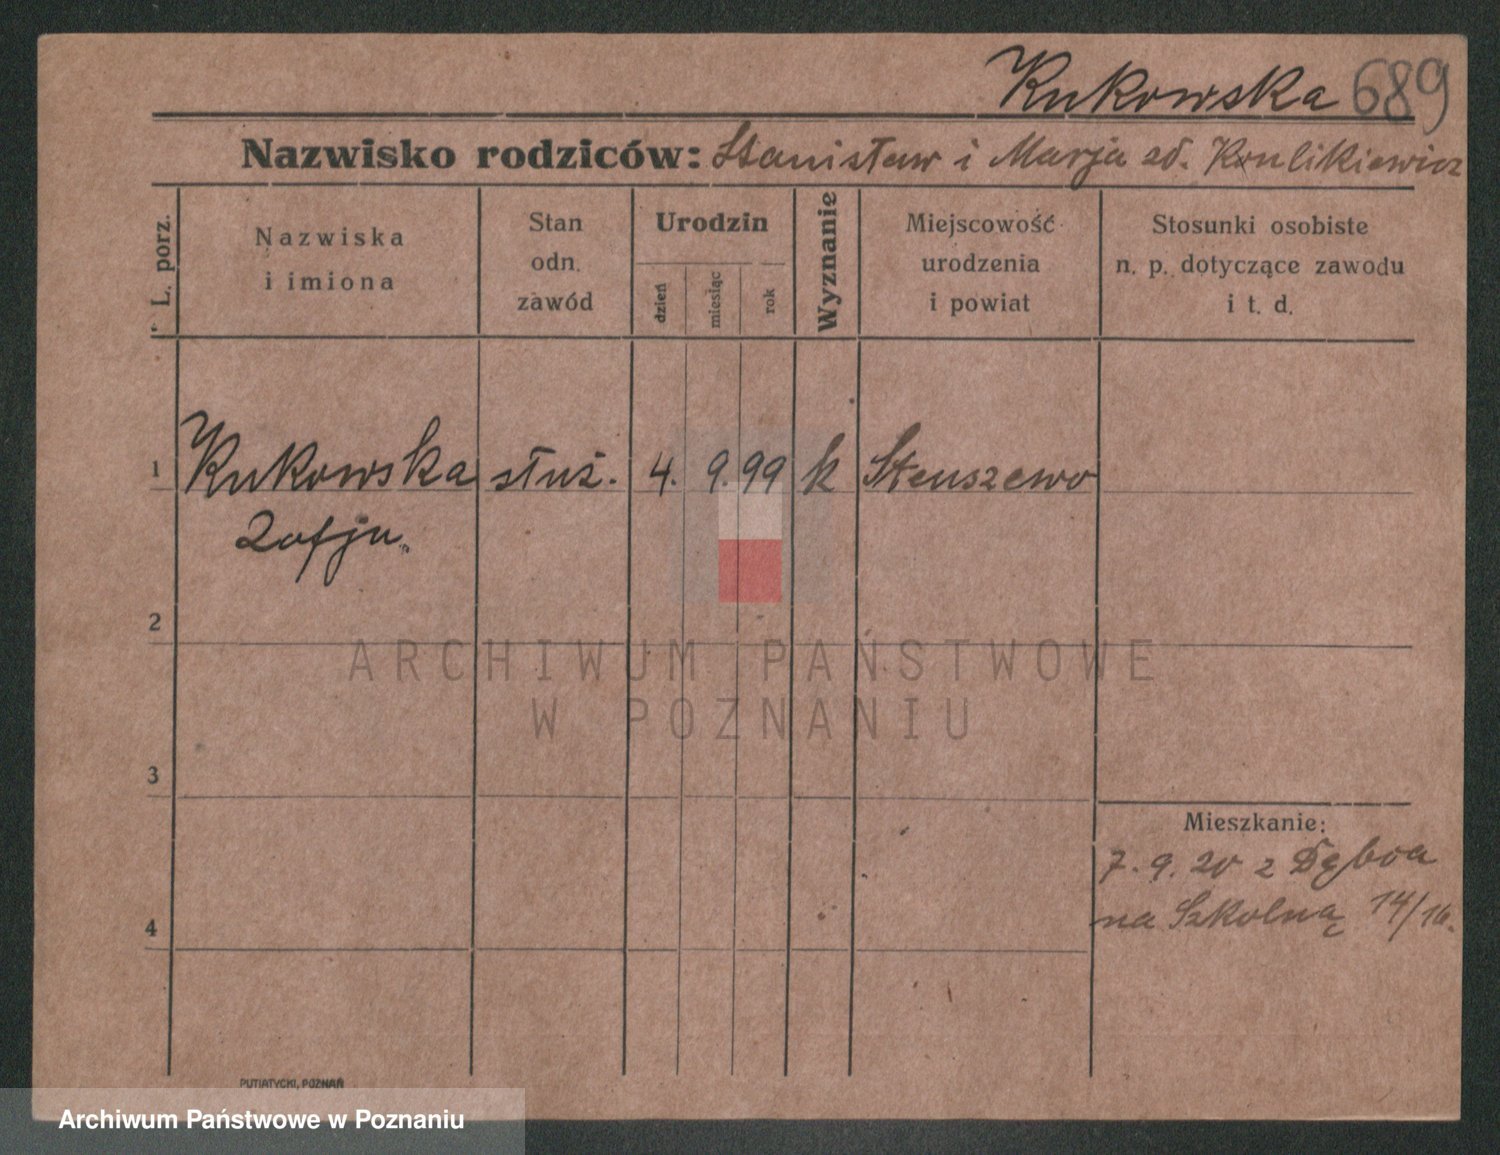 Kukowska 689
Nazwisko rodziców: Stanisław i Marja zd.
L. porz.
Nazwiska
i imiona
Stan
odn.
zawód
Urodzin
dzień
miesiąc
rok
Wyznanie
Miejscowość
urodzenia
i powiat
Stosunki osobiste
n. p. dotyczące zawodu
i t. d.
1 Kukowska służ. 4. 9. 99 k Stenszewo
Zofja.
2
3
4
Mieszkanie:
7. 9. 20 z Dębca
na Szkolną 14/16.
ARCHIWUM PAŃSTWOWE
W POZNANIU
PUTIATYCKI, POZNAŃ
Archiwum Państwowe w Poznaniu